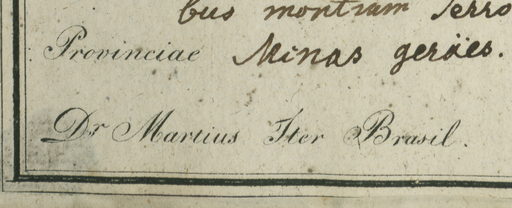 bus montium Serro
Provinciae Minas geräes.
Dr Martius Iter Brasil.